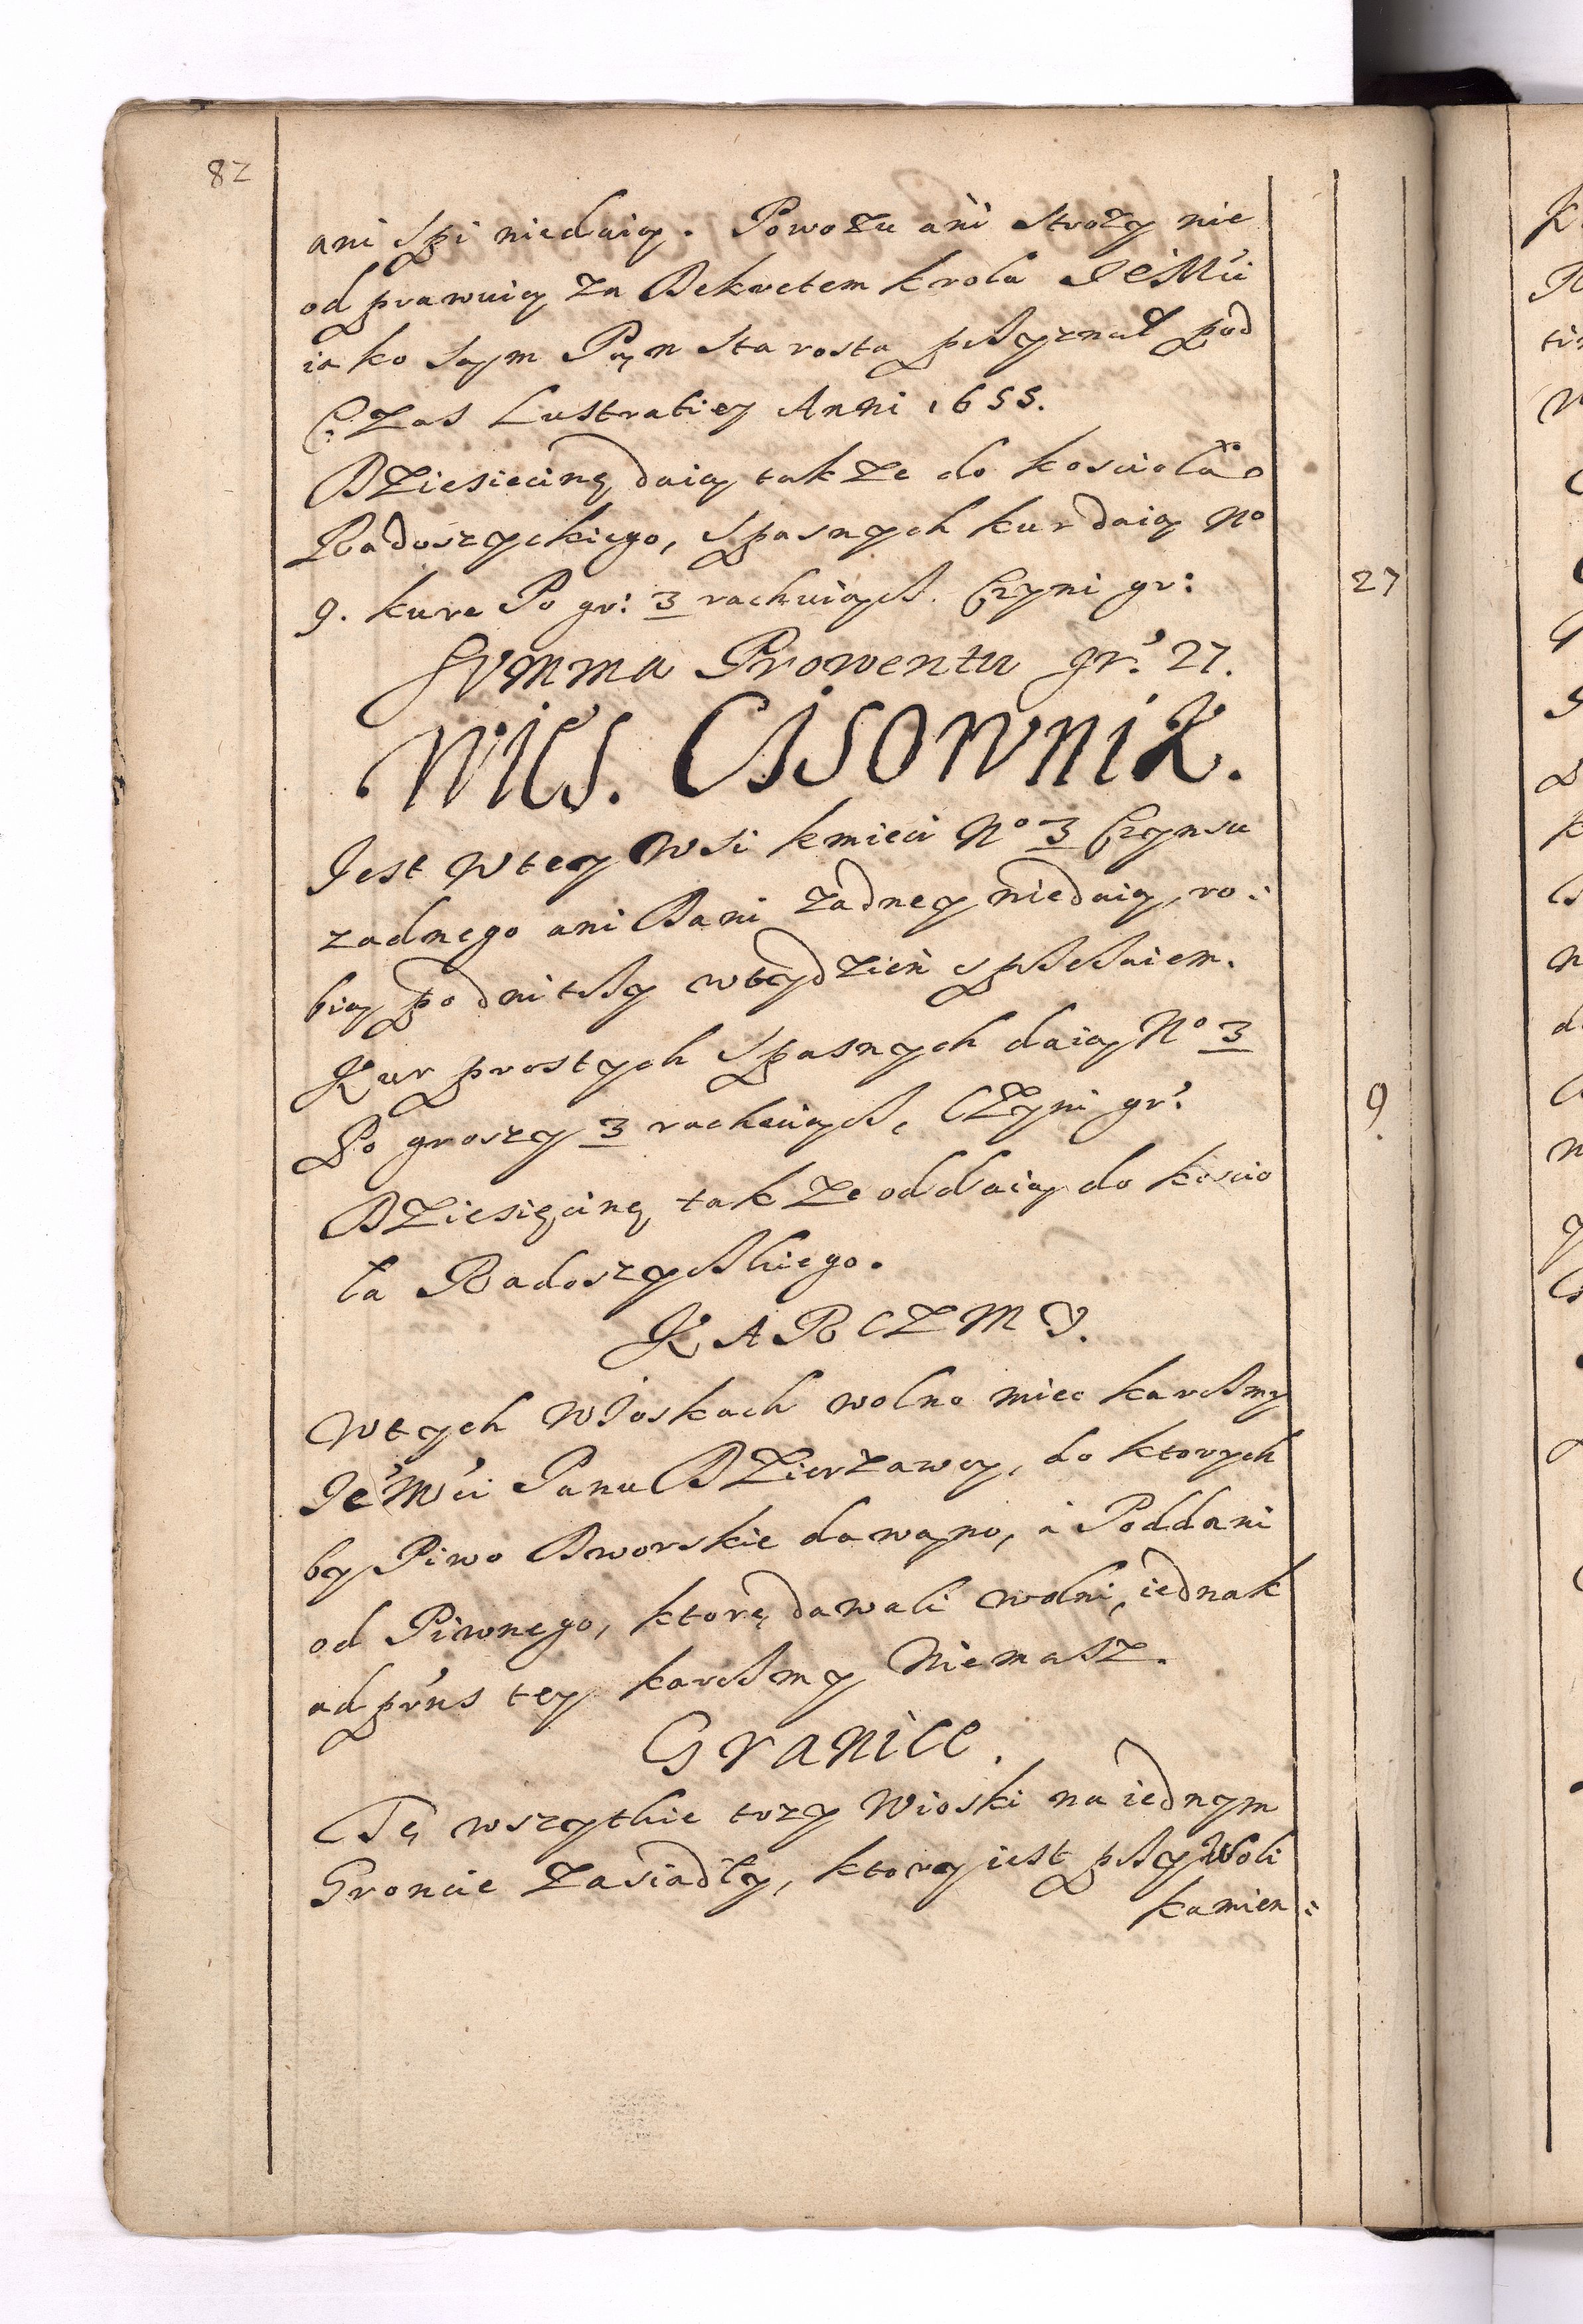 82
ani Spi niedaią. Powozu ani Strozy nie
odprawuią za Dekretem krola JeMci
iako sąm Pąn Starosta przyznał pod
Czas Lustratiey Anni 1655.
Dziesiecinę daią takze do koscioła
Radoszyckiego, Spasnych kur daią No
9. kure Po gr: 3 rachuiąc. Czyni gr: 27
Summa Prowentu gr: 27.
Wies. Cisownik.
Jest w tey Wsi kmieci No 3 Czynsu
zadnego ani Dani zadney niedaią, ro:
bią po dni trzy w tydzień sprzężaiem.
Kur prostych Spasnych daią No 3
Po groszy 3 rachuiąc, Czyni gr: 9.
Dziesięcinę takze oddaią do koscio
ła Radoszyckiego.
KARCZMY.
W tych Wioskach wolno miec karczmy
JeMci Panu Dzierzawcy, do ktorych
by Piwo Dworskie dawano, a Poddani
od Piwnego, ktorę dawali wolni, iednak
ad prns tey karczmy Niemasz.
Granice.
Tę wszytkie trzy Wioski na iednym
Groncie Zasiadły, ktory iest przy Woli
kamien: